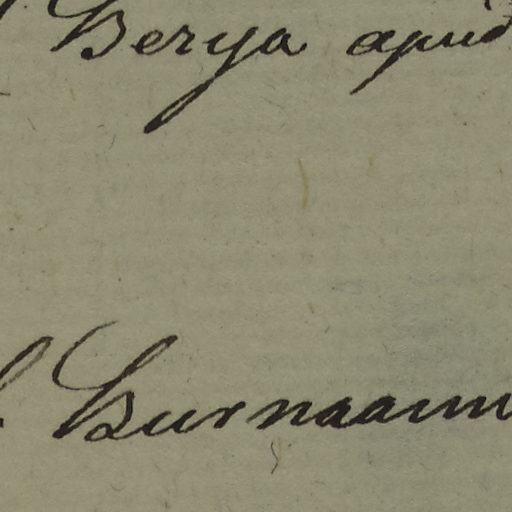 Berya apud
Burnaam